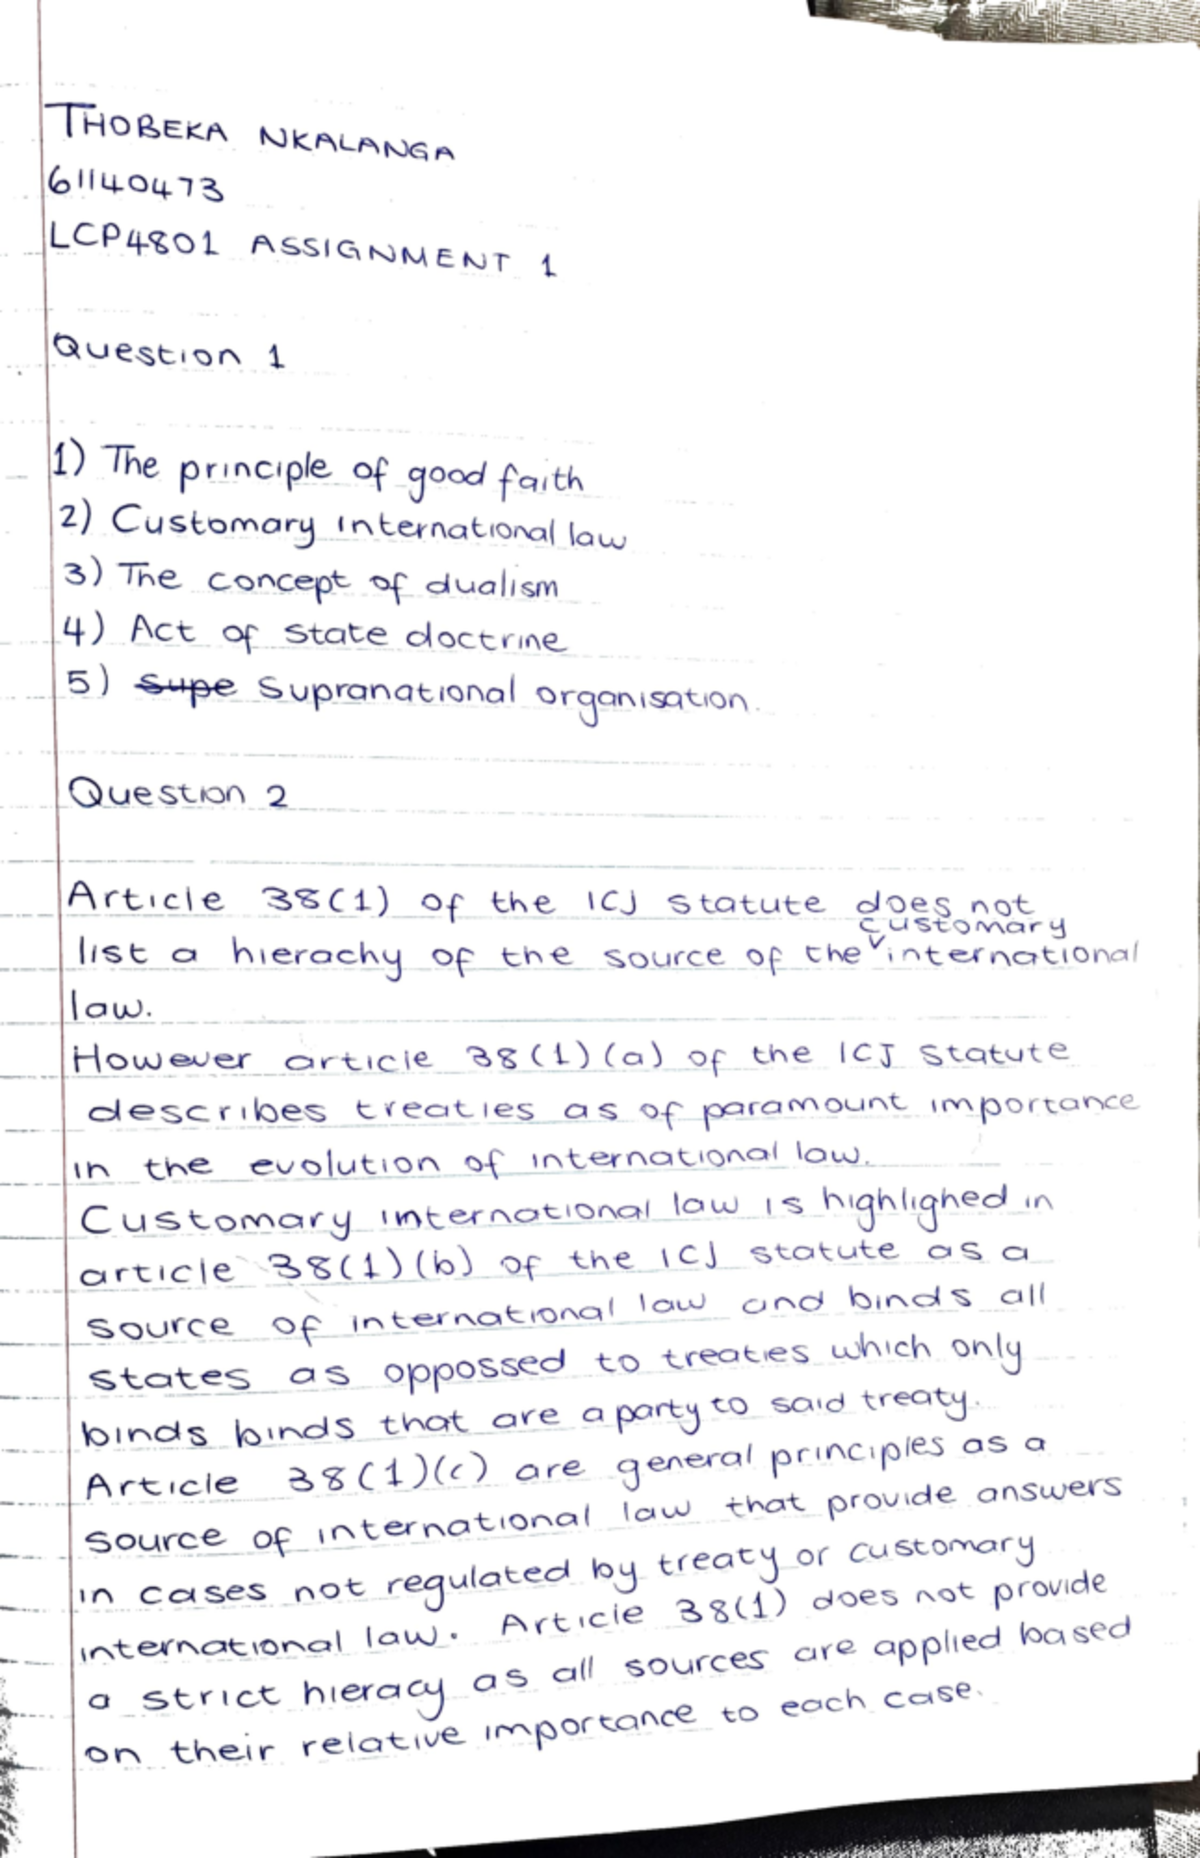 THOBEKA NKALANGA
61140473
LCP4801 ASSIGNMENT 1
Question 1
1) The principle of good faith
2) Customary international law
3) The concept of dualism
4) Act of state doctrine
5) Supe Supranational organisation.
Question 2
Article 38(1) of the ICJ statute does not
customary
list a hierachy of the source of the international
law.
However article 38(1)(a) of the ICJ Statute
describes treaties as of paramount importance
in the evolution of international law.
Customary international law is highlighed in
article 38(1)(b) of the ICJ statute as a
source of international law and binds all
states as oppossed to treaties which only
binds binds that are a party to said treaty.
Article 38(1)(c) are general principles as a
source of international law that provide answers
in cases not regulated by treaty or customary
international law. Article 38(1) does not provide
a strict hieracy as all sources are applied based
on their relative importance to each case.